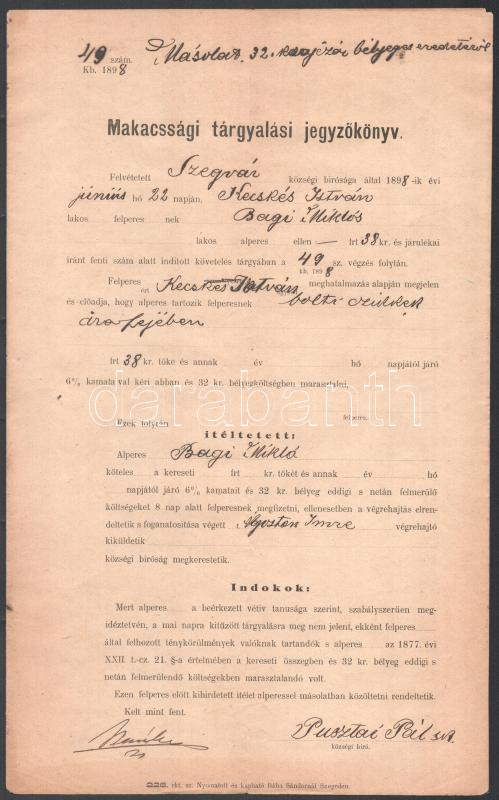 49 szám. Másolat. 32. krajczár bélyeges eredetéről
Kb. 1898
Makacssági tárgyalási jegyzőkönyv.
Felvétetett Szegvár községi birósága által 1898-ik évi
június hó 22 napján, Kecskés István
lakos felperes nek Bagi Miklós
lakos alperes ellen — frt 38 kr. és járulékai
iránt fenti szám alatt inditott követelés tárgyában a 49 sz. végzés folytán.
kb. 1898
Felperes ért Kecskés István meghatalmazás alapján megjelen
és előadja, hogy alperes tartozik felperesnek bolti czikkek
ára fejében
frt 38 kr. tőke és annak év hó napjától járó
6% kamataval kéri abban és 32 kr. bélyegköltségben marasztalni,
felperes.
Ezek folytán
itéltetett:
Alperes Bagi Mikló
köteles a kereseti frt kr. tőkét és annak év hó
napjától járó 6% kamatait és 32 kr. bélyeg eddigi s netán felmerülő
költségeket 8 nap alatt felperesnek megfizetni, ellenesetben a végrehajtás elren-
deltetik s foganatositása végett Ágoston Imre végrehajtó
kiküldetik
községi biróság megkerestetik.
Indokok:
Mert alperes a beérkezett vétiv tanusága szerint, szabályszerüen meg-
idéztetvén, a mai napra kitüzött tárgyalásra meg nem jelent, ekként felperes
által felhozott ténykörülmények valóknak tartandók s alperes az 1877. évi
XXII. t.-cz. 21. §-a értelmében a kereseti összegben és 32 kr. bélyeg eddigi s
netán felmerülendő költségekben marasztalandó volt.
Ezen felperes előtt kihirdetett itélet alperessel másolatban közöltetni rendeltetik.
Kelt mint fent.
Pusztai Pál
községi biró.
226. rkt. sz. Nyomatott és kapható Bába Sándornál Szegeden.
darabanth